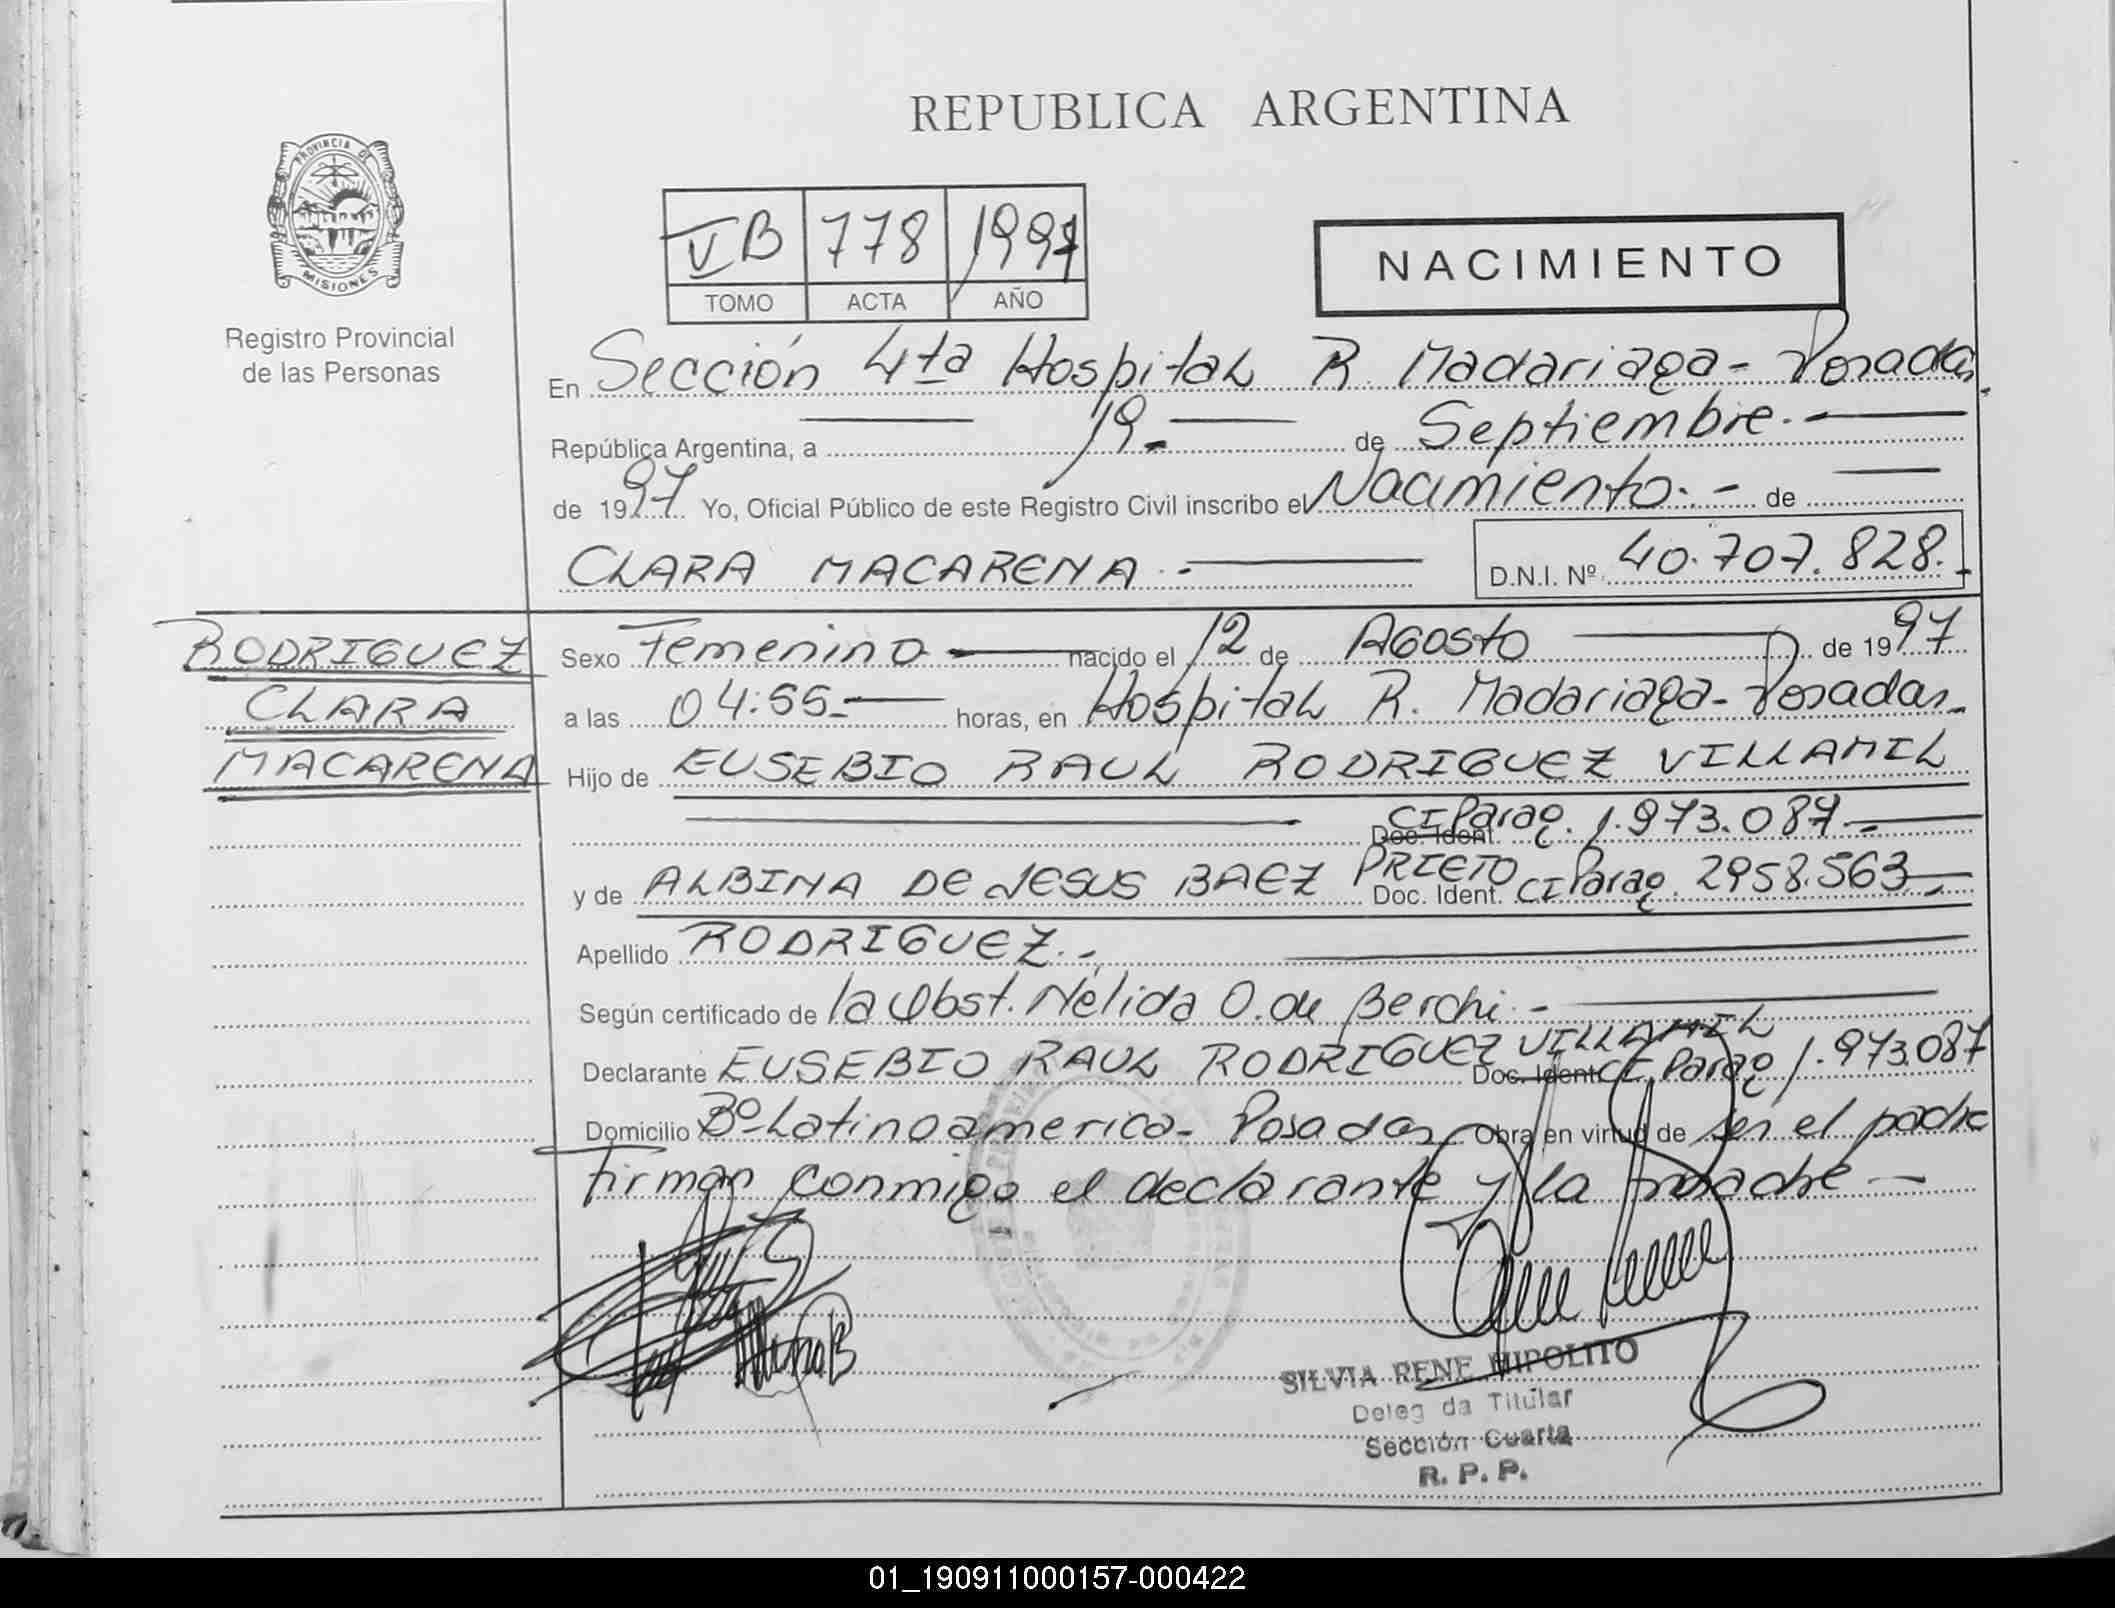 REPUBLICA ARGENTINA
PROVINCIA DE
MISIONES
Registro Provincial
de las Personas
V B 778 1997
TOMO ACTA AÑO
NACIMIENTO
En Sección 4ta Hospital R. Madariaga - Posadas.
República Argentina, a 19 - de Septiembre. -
de 1997 Yo, Oficial Público de este Registro Civil inscribo el Nacimiento. - de
CLARA MACARENA . - D.N.I. Nº 40.707.828. -
RODRIGUEZ
CLARA
MACARENA
Sexo Femenino nacido el 12 de Agosto de 1997
a las 04:55 - horas, en Hospital R. Madariaga - Posadas. -
Hijo de EUSEBIO RAUL RODRIGUEZ VILLAMIL
Doc. Ident. CI Parag. 1.973.087 -
y de ALBINA DE JESUS BAEZ PRIETO Doc. Ident. CI Parag. 2958.563 -
Apellido RODRIGUEZ. -
Según certificado de la Obst. Nélida O. de Berchi. -
Declarante EUSEBIO RAUL RODRIGUEZ VILLAMIL Doc. Ident. CI Parag 1.973.087
Domicilio Bº Latinoamerica - Posadas Obra en virtud de ser el padre
Firman conmigo el declarante y la madre -
SILVIA RENE HIPOLITO
Deleg da Titular
Sección Cuarta
R. P. P.
01_190911000157-000422